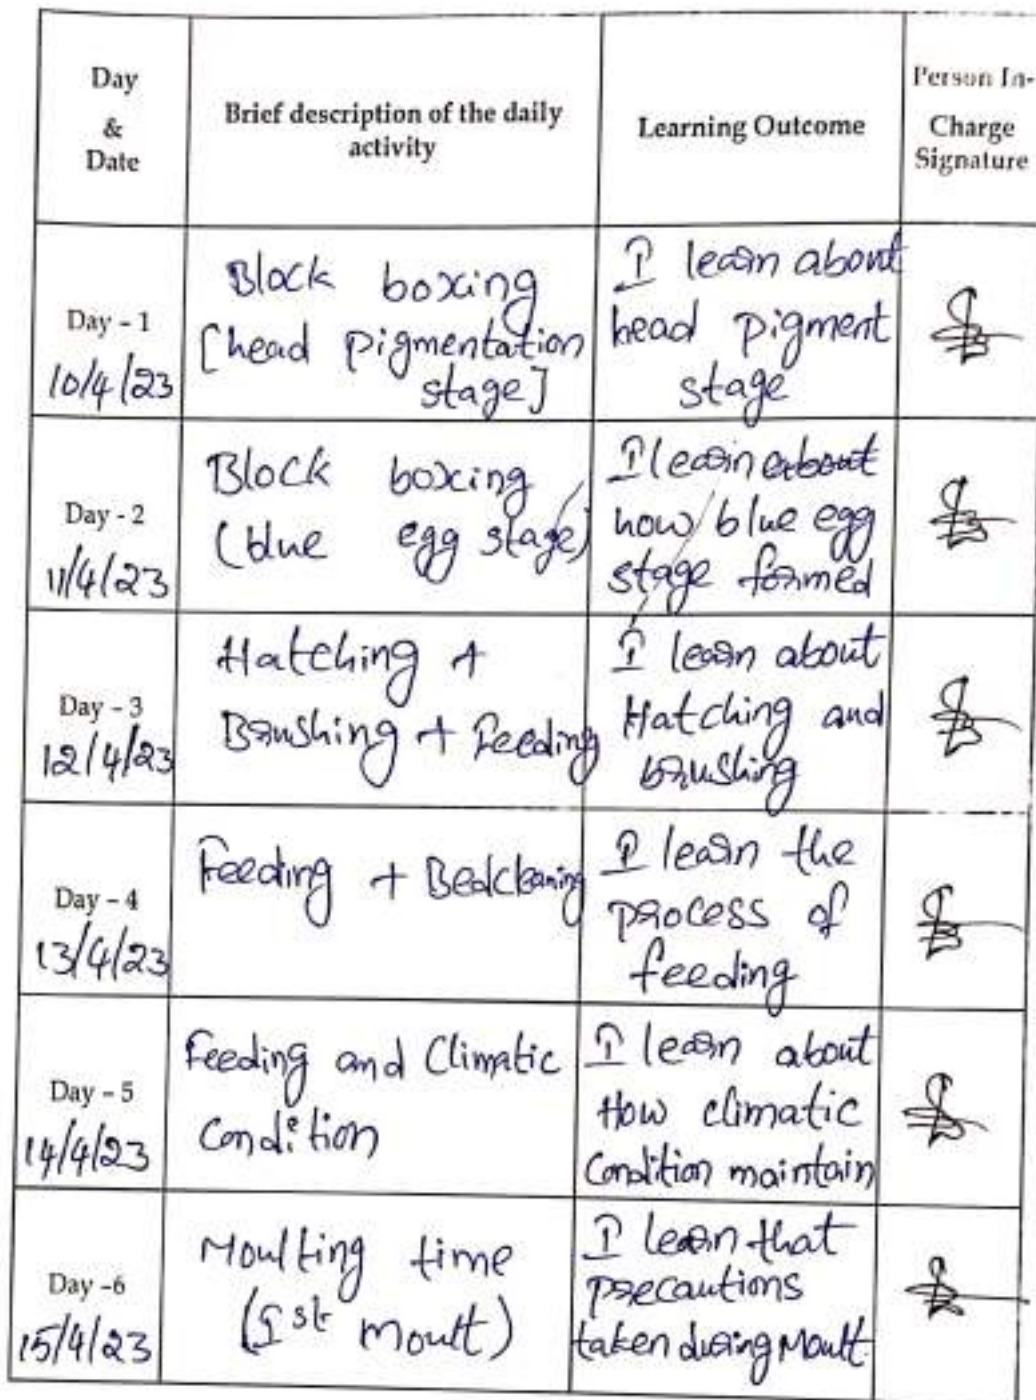 Day
&
Date
Brief description of the daily
activity
Learning Outcome
Person In-
Charge
Signature
Day - 1
10/4/23
Block boxing
[head pigmentation
stage]
I learn about
head pigment
stage
Day - 2
11/4/23
Block boxing
(blue egg stage)
I learn about
how blue egg
stage formed
Day - 3
12/4/23
Hatching +
Brushing + Feeding
I learn about
Hatching and
brushing
Day - 4
13/4/23
Feeding + Bedcleaning
I learn the
process of
feeding
Day - 5
14/4/23
Feeding and Climatic
Condition
I learn about
How climatic
Condition maintain
Day -6
15/4/23
Moulting time
(Ist Moult)
I learn that
precautions
taken during Moult